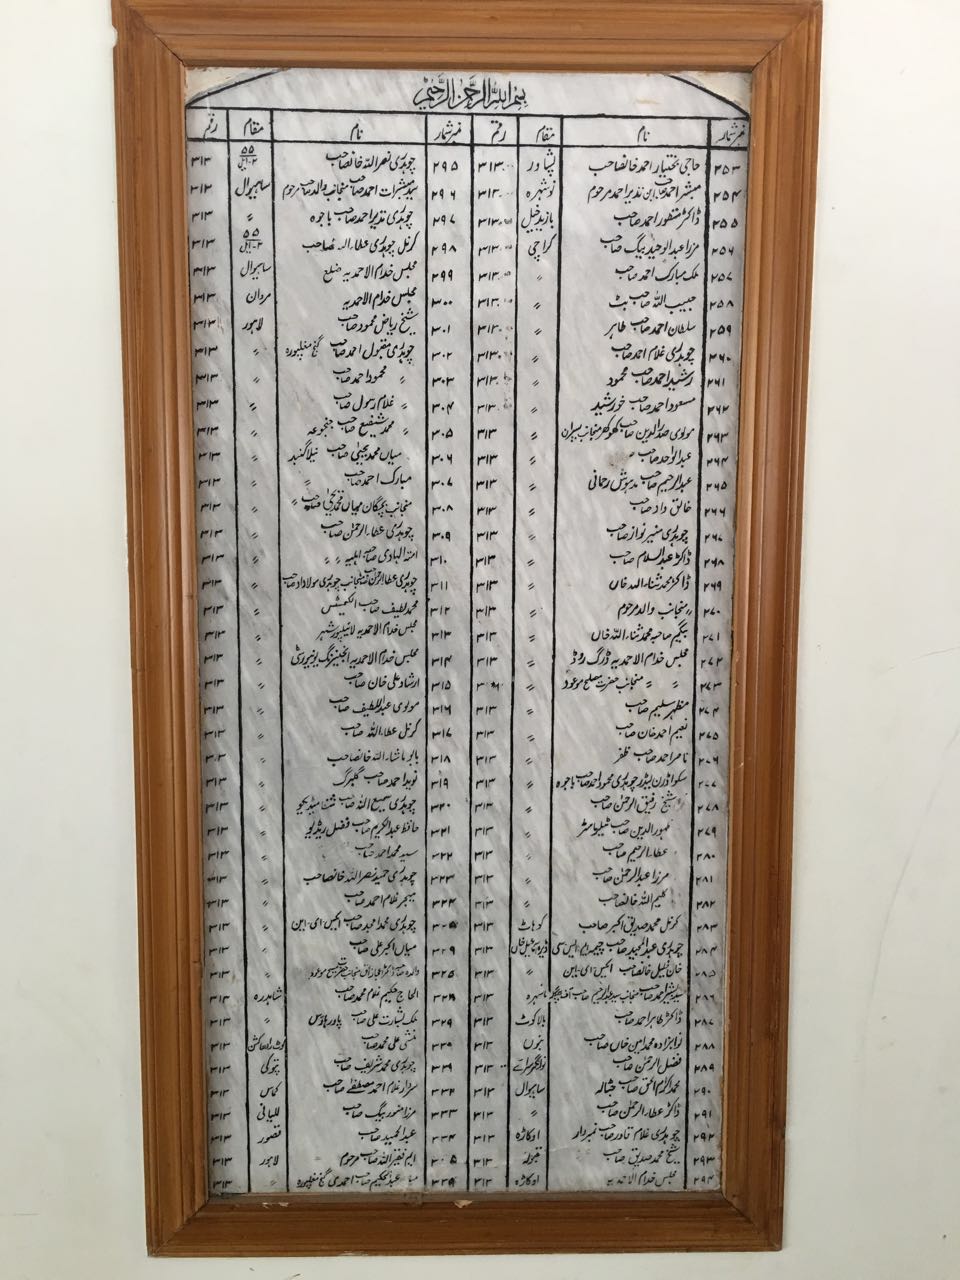 بسم اللہ الرحمٰن الرحیم
نمبر شمار نام مقام رقم نمبر شمار نام مقام رقم
۲۵۳ حاجی بختیار احمد خانصاحب پشاور ۳۱۳ ۲۹۵ چوہدری نصر اللہ خانصاحب ۵۵/۲-ایل ۳۱۳
۲۵۴ مبشر احمد صاحب ابن نذیر احمد مرحوم نوشہرہ ۳۱۳ ۲۹۶ سید مبشرات احمد صاحب منجانب والد صاحب مرحوم ساہیوال ۳۱۳
۲۵۵ ڈاکٹر منظور احمد صاحب بازید خیل ۳۱۳ ۲۹۷ چوہدری نذیر احمد صاحب باجوہ 〃 ۳۱۳
۲۵۶ مرزا عبد الوحید بیگ صاحب کراچی ۳۱۳ ۲۹۸ کرنل چوہدری عطاء اللہ صاحب ۵۵/۲-ایل ۳۱۳
۲۵۷ ملک مبارک احمد صاحب 〃 ۳۱۳ ۲۹۹ مجلس خدام الاحمدیہ ضلع ساہیوال ۳۱۳
۲۵۸ حبیب اللہ صاحب بٹ 〃 ۳۱۳ ۳۰۰ مجلس خدام الاحمدیہ مردان ۳۱۳
۲۵۹ سلطان احمد صاحب طاہر 〃 ۳۱۳ ۳۰۱ شیخ ریاض محمود صاحب لاہور ۳۱۳
۲۶۰ چوہدری غلام احمد صاحب 〃 ۳۱۳ ۳۰۲ چوہدری مقبول احمد صاحب گنج مغلپورہ 〃 ۳۱۳
۲۶۱ رشید احمد صاحب محمود 〃 ۳۱۳ ۳۰۳ 〃 محمود احمد صاحب 〃 ۳۱۳
۲۶۲ مسعود احمد صاحب خورشید 〃 ۳۱۳ ۳۰۴ 〃 غلام رسول صاحب 〃 ۳۱۳
۲۶۳ مولوی صدر الدین صاحب کھوکھر منجانب پسران 〃 ۳۱۳ ۳۰۵ 〃 محمد شفیع صاحب جنجوعہ 〃 ۳۱۳
۲۶۴ عبد الواحد صاحب 〃 ۳۱۳ ۳۰۶ میاں محمد یحییٰ صاحب نیلا گنبد 〃 ۳۱۳
۲۶۵ عبد الرحیم صاحب مدہوش رحمانی 〃 ۳۱۳ ۳۰۷ مبارک احمد صاحب 〃 〃 ۳۱۳
۲۶۶ خالق داد صاحب 〃 ۳۱۳ ۳۰۸ منجانب بچگان میاں محمد یحییٰ صاحب 〃 〃 ۳۱۳
۲۶۷ چوہدری منیر نواز صاحب 〃 ۳۱۳ ۳۰۹ چوہدری عطاء الرحمٰن صاحب 〃 ۳۱۳
۲۶۸ ڈاکٹر عبد السلام صاحب 〃 ۳۱۳ ۳۱۰ امۃ الہادی صاحبہ اہلیہ 〃 〃 〃 ۳۱۳
۲۶۹ ڈاکٹر محمد ثناء اللہ خاں 〃 ۳۱۳ ۳۱۱ چوہدری عطاء الرحمٰن صاحب منجانب چوہدری مولاداد صاحب 〃 ۳۱۳
۲۷۰ 〃 منجانب والد مرحوم 〃 ۳۱۳ ۳۱۲ محمد لطیف صاحب 〃 ۳۱۳
۲۷۱ بیگم صاحبہ محمد ثناء اللہ خاں 〃 ۳۱۳ ۳۱۳ مجلس خدام الاحمدیہ لائلپور شہر 〃 ۳۱۳
۲۷۲ مجلس خدام الاحمدیہ ڈرگ روڈ 〃 ۳۱۳ ۳۱۴ مجلس خدام الاحمدیہ انجینئرنگ یونیورسٹی 〃 ۳۱۳
۲۷۳ 〃 〃 منجانب حضرت مصلح موعود 〃 ۳۱۵ ارشاد علی خان صاحب 〃 ۳۱۳
۲۷۴ مظہر سلیم صاحب 〃 ۳۱۳ ۳۱۶ مولوی عبد اللطیف صاحب 〃 ۳۱۳
۲۷۵ نعیم احمد خان صاحب 〃 ۳۱۳ ۳۱۷ کرنل عطاء اللہ صاحب 〃 ۳۱۳
۲۷۶ ناصر احمد صاحب ظفر 〃 ۳۱۳ ۳۱۸ بابو ماشاء اللہ خانصاحب 〃 ۳۱۳
۲۷۷ سکواڈرن لیڈر چوہدری محمود احمد صاحب باجوہ 〃 ۳۱۳ ۳۱۹ نوید احمد صاحب گلبرگ 〃 ۳۱۳
۲۷۸ شیخ رفیق الرحمٰن صاحب 〃 ۳۱۳ ۳۲۰ چوہدری سمیع اللہ صاحب 〃 ۳۱۳
۲۷۹ ظہور الدین صاحب ٹیلیو ماسٹر 〃 ۳۱۳ ۳۲۱ حافظ عبد الکریم صاحب فضل ریڈیو 〃 ۳۱۳
۲۸۰ عطاء الرحیم صاحب 〃 ۳۱۳ ۳۲۲ سید محمد احمد صاحب 〃 ۳۱۳
۲۸۱ مرزا عبد الرحمٰن صاحب 〃 ۳۱۳ ۳۲۳ چوہدری حمید نصر اللہ خانصاحب 〃 ۳۱۳
۲۸۲ کلیم اللہ خانصاحب 〃 ۳۱۳ ۳۲۴ میجر غلام احمد صاحب 〃 ۳۱۳
۲۸۳ کرنل محمد صدیق اکبر صاحب کوہاٹ ۳۱۳ چوہدری محمد امجد صاحب ایکس-ای-این 〃 ۳۱۳
۲۸۴ چوہدری عبد الحمید صاحب چیمہ ایم-ایس-سی ڈیرہ اسمٰعیل خاں ۳۱۳ میاں اکبر علی صاحب 〃 ۳۱۳
۲۸۵ خان خلیل خانصاحب ایکس-ای-این 〃 ۳۱۳ 〃 ۳۱۳
۲۸۶ سید بشیر احمد صاحب منجانب مانسہرہ ۳۱۳ الحاج حکیم غلام محمد صاحب شاہدرہ ۳۱۳
۲۸۷ ڈاکٹر طاہر احمد صاحب بالاکوٹ ۳۱۳ ۳۲۹ ملک بشارت علی صاحب پاور ہاؤس 〃 ۳۱۳
۲۸۸ نوابزادہ محمد امین خاں صاحب بنوں ۳۱۳ منشی علی محمد صاحب ۳۱۳
۲۸۹ فضل الرحمٰن صاحب ۳۱۳ چوہدری محمد شریف صاحب پتوکی ۳۱۳
۲۹۰ محمد اکرام الحق صاحب ساہیوال ۳۱۳ ۳۳۲ سردار غلام احمد مصطفےٰ صاحب ۳۱۳
۲۹۱ ڈاکٹر عطاء الرحمٰن صاحب 〃 ۳۱۳ ۳۳۳ مرزا منور بیگ صاحب للیانی ۳۱۳
۲۹۲ چوہدری غلام قادر صاحب نمبردار اوکاڑہ ۳۱۳ ۳۳۴ عبد الحمید صاحب قصور ۳۱۳
۲۹۳ شیخ محمد صدیق صاحب قبولہ ۳۱۳ ایم ظفر اللہ صاحب مرحوم لاہور ۳۱۳
۲۹۴ مجلس خدام الاحمدیہ اوکاڑہ ۳۱۳ عبد الحکیم صاحب احمدی گنج مغلپورہ 〃 ۳۱۳